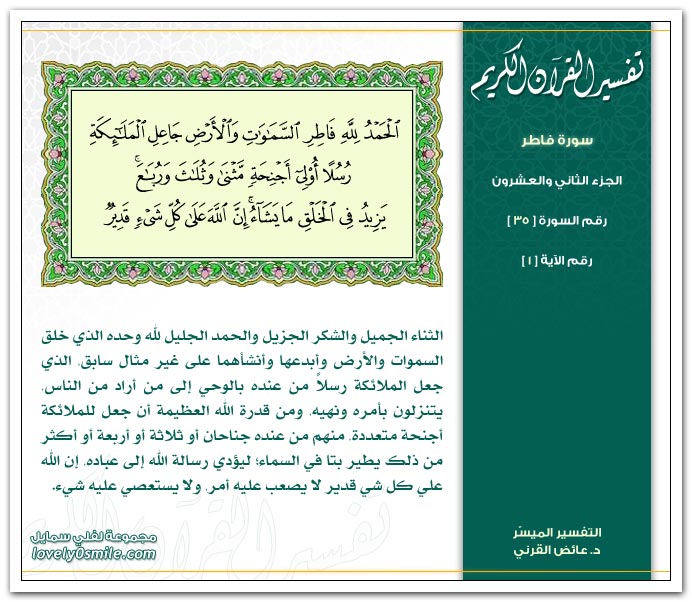 تفسير القرآن الكريم
سورة فاطر
الجزء الثاني والعشرون
رقم السورة [ ٣٥ ]
رقم الآية [ ١ ]
ٱلْحَمْدُ لِلَّهِ فَاطِرِ ٱلسَّمَٰوَٰتِ وَٱلْأَرْضِ جَاعِلِ ٱلْمَلَٰٓئِكَةِ
رُسُلًا أُو۟لِىٓ أَجْنِحَةٍ مَّثْنَىٰ وَثُلَٰثَ وَرُبَٰعَ ۚ
يَزِيدُ فِى ٱلْخَلْقِ مَا يَشَآءُ ۚ إِنَّ ٱللَّهَ عَلَىٰ كُلِّ شَىْءٍ قَدِيرٌ
الثناء الجميل والشكر الجزيل والحمد الجليل لله وحده الذي خلق
السموات والأرض وأبدعها وأنشأهما على غير مثال سابق، الذي
جعل الملائكة رسلاً من عنده بالوحي إلى من أراد من الناس،
يتنزلون بأمره ونهيه، ومن قدرة الله العظيمة أن جعل للملائكة
أجنحة متعددة، منهم من عنده جناحان أو ثلاثة أو أربعة أو أكثر
من ذلك يطير بتا في السماء؛ ليؤدي رسالة الله إلى عباده، إن الله
علي كل شي قدير لا يصعب عليه أمر، ولا يستعصي عليه شيء.
التفسير الميسّر
د. عائض القرني
مجموعة لفلي سمايل
lovely0smile.com
تفسير القرآن الكريم